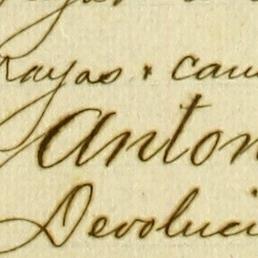 Rayas + cam
Anton
Devoluci